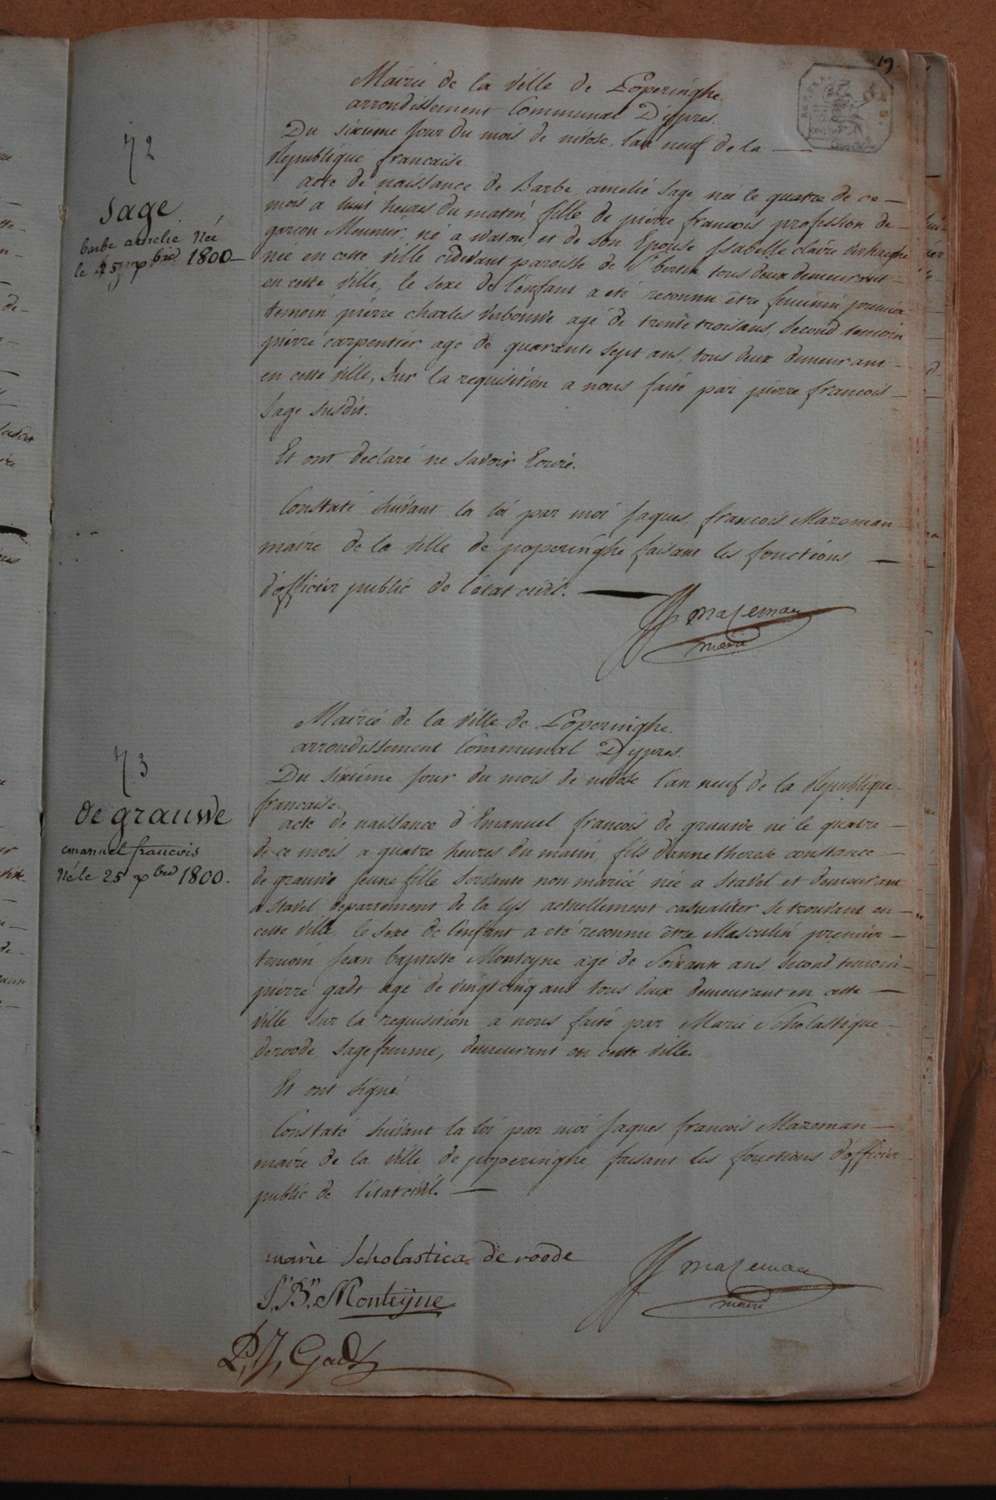 19
Mairie de la ville de Poperinghe
arrondissement Communal D'ypres.
Du sixieme jour du mois de nivose l'an neuf de la
Republique francaise
72
Sage
barbe amelie Née
le 25 xbre 1800
acte de naissance de Barbe amelie Sage née le quatre de ce
mois a huit heures du matin, fille de pierre francois profession de
garcon Meunier, né a watou et de son Epouse Isabelle claire
née en cette ville cidevant paroisse de St bertin tous deux demeurant
en cette ville, le sexe de l'enfant a eté reconnu être feminin premier
temoin pierre charles verbouwe agé de trente trois ans, second temoin
pierre carpentier age de quarante sept ans, tous deux demeurant
en cette ville, sur la requisition a nous faite par pierre francois
Sage susdit.
Et ont declaré ne savoir Ecrire.
Constaté suivant la loi par moi Jaques francois Mazeman
maire de la ville de poperinghe faisant les fonctions
d'officier public de l'état civil.
JF Mazeman
maire
Mairie de la ville de Poperinghe
arrondissement Communal D'ypres
73
de grauwe
emanuel francois
Né le 25 xbre 1800.
Du sixieme jour du mois de nivose l'an neuf de la Republique
francaise.
acte de naissance d'Emanuel francois de grauwe né le quatre
de ce mois a quatre heures du matin, fils d'anne therese constance
de grauwe jeune fille servante non mariée née a Stavel et demeurant
a Stavel departement de la lys actuellement casualiter se trouvant en
cette ville le sexe de l'enfant a eté reconnu être Masculin premier
temoin Jean baptiste Monteyne age de Soixante ans second temoin
pierre gads age de vingt cinq ans tous deux demeurant en cette
ville sur la requisition a nous faite par Marie Scholastique
deroode sage femme, demeurant en cette ville.
Et ont signé
Constaté suivant la loi par moi Jaques francois Mazeman
maire de la ville de poperinghe faisant les fonctions d'officier
public de l'état civil.
marie scholastica de roode
Jn Bn Monteijne
JF Mazeman
maire
P, J, Gads